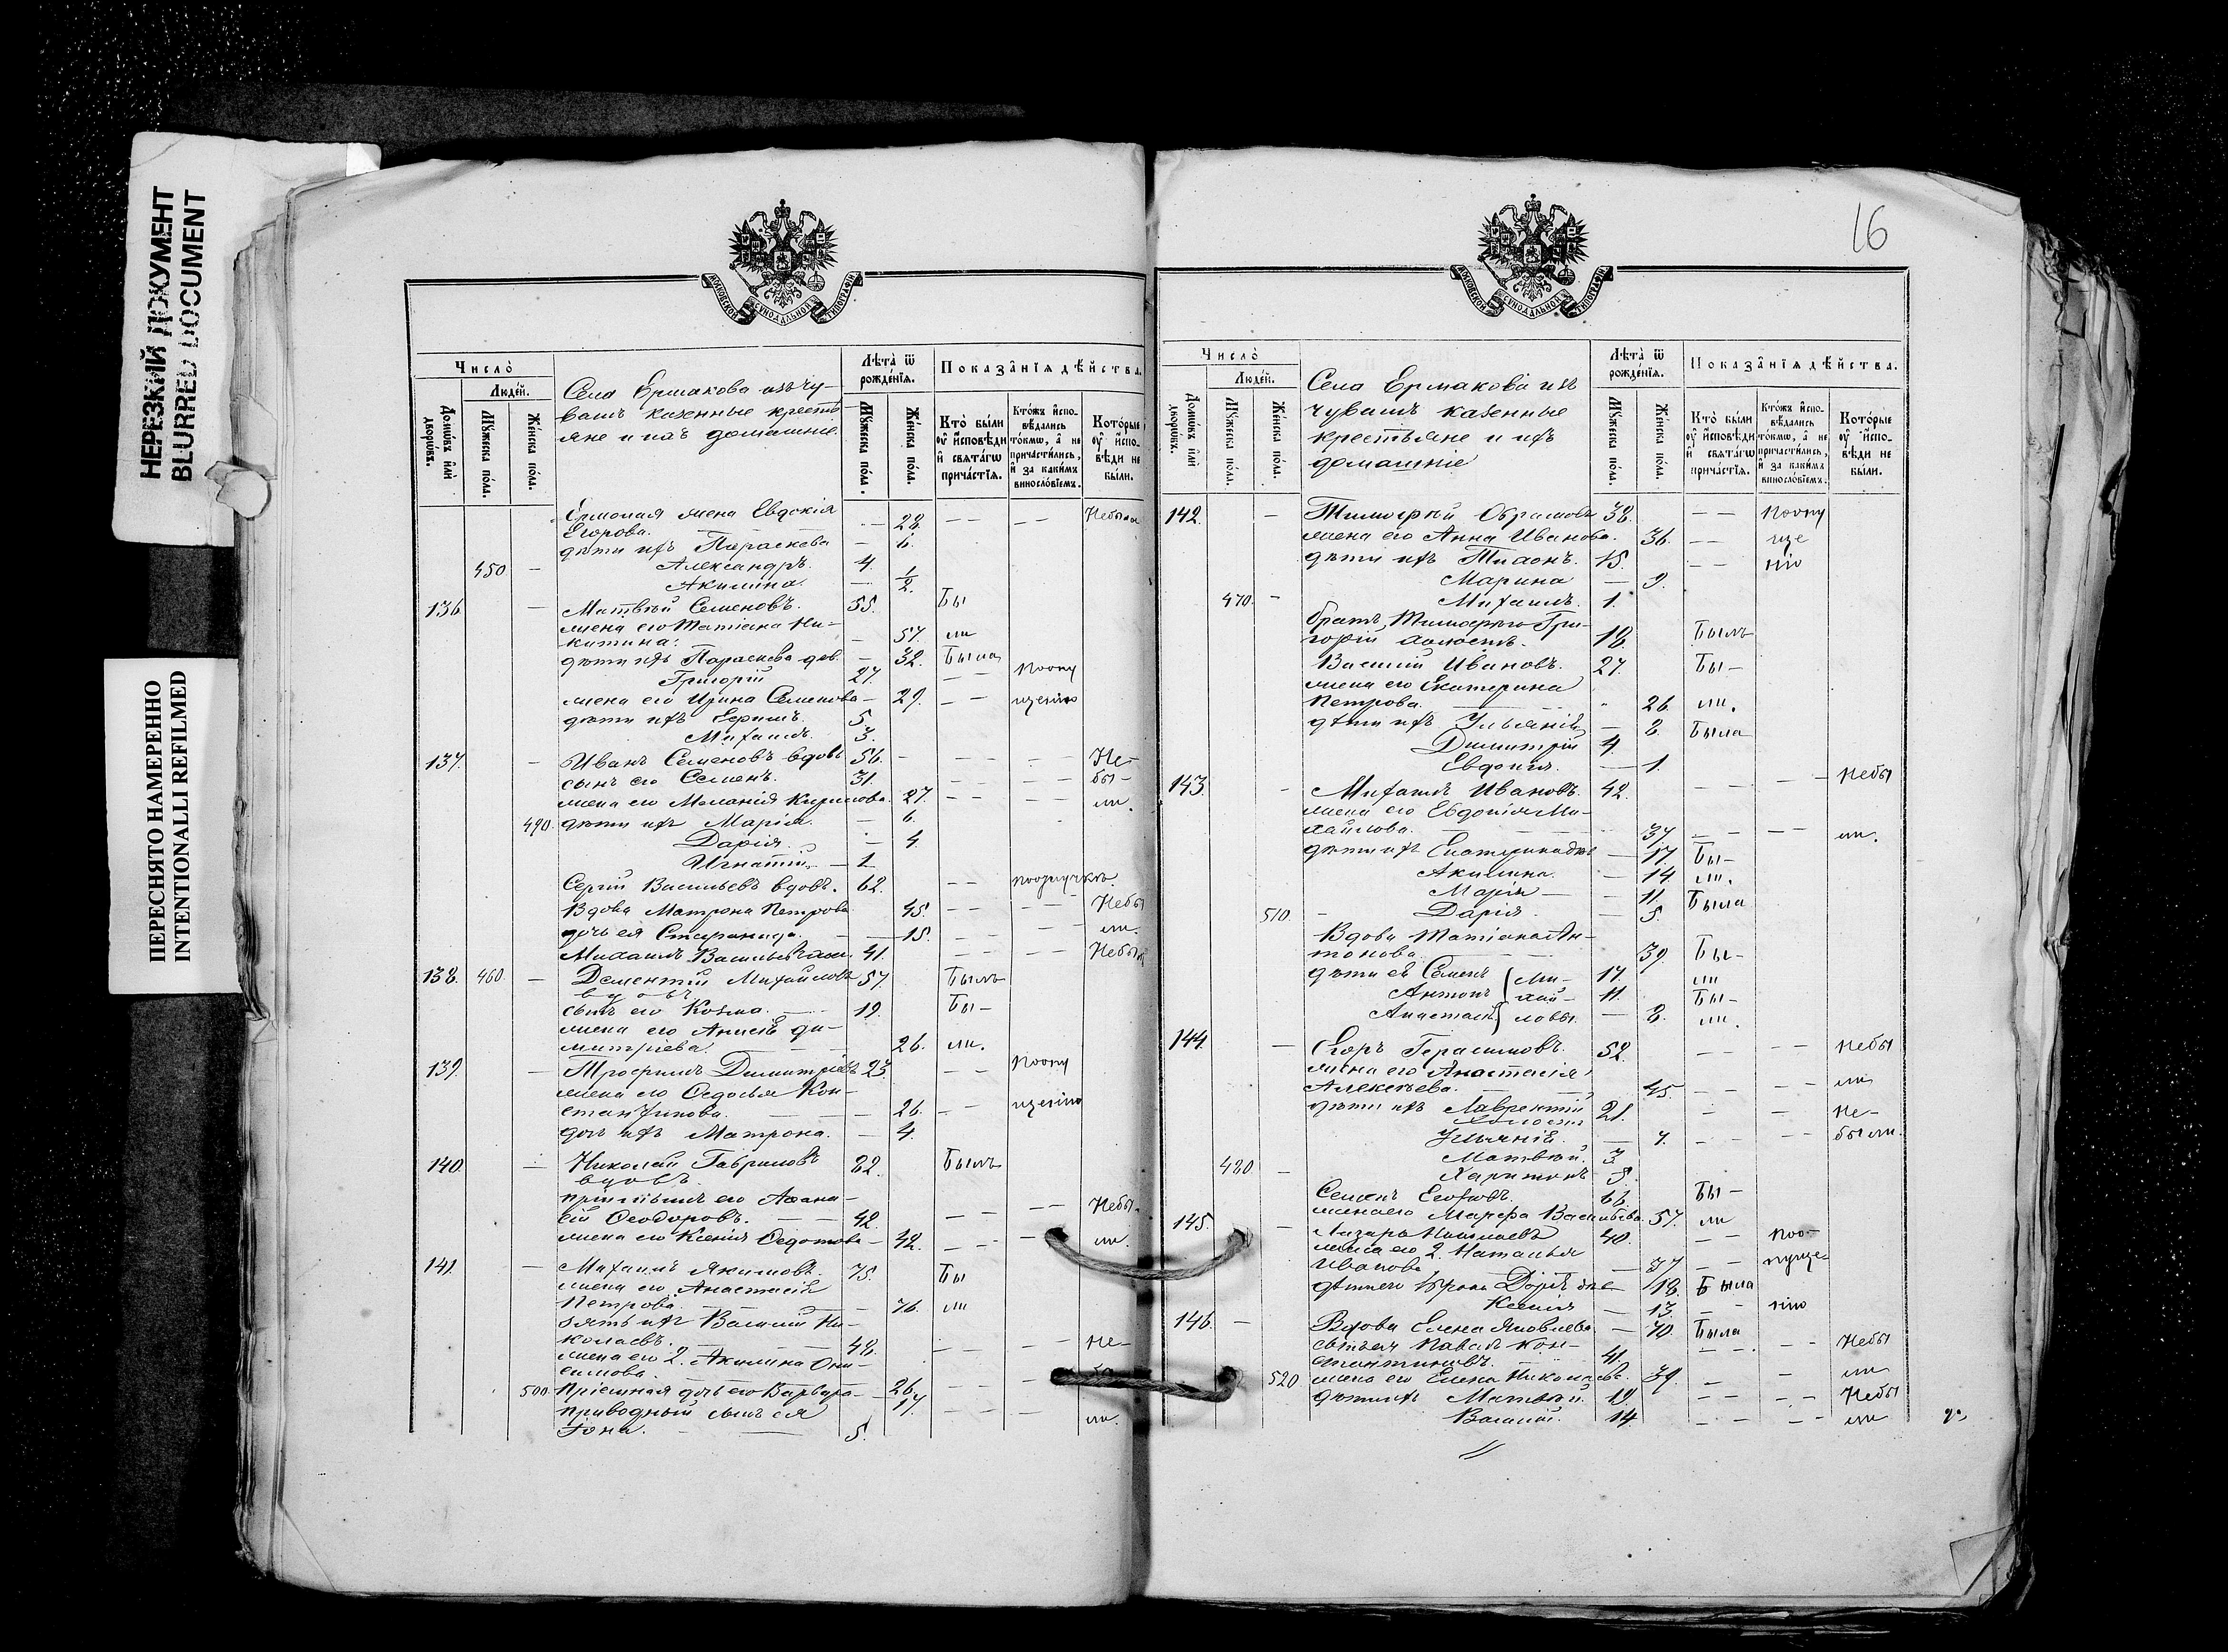 НЕРЕЗКИЙ ДОКУМЕНТ
BLURRED DOCUMENT
ПЕРЕСНЯТО НАМЕРЕННО
INTENTIONALLI REFILMED
МОСКОВСКОЙ СѴНОДАЛЬНОЙ ТИПОГРАФІИ
Число̀
Люде́й.
Домѡ́въ и҆лѝ дворѡ́въ.
Мꙋ́жеска по́ла.
Же́нска по́ла.
Села Ермакова изъ чу-
вашъ казенные кресть-
яне и ихъ домашние.
Лѣта̀ ѿ рожде́нїѧ.
Мꙋ́жеска по́ла.
Же́нска по́ла.
Показа̂нїѧ дѣ́йства.
Кто̀ бы́ли ᲂу҆ и҆сповѣ́ди и҆ свѧта́гѡ прича́стїѧ.
Кто́жъ и҆спо-вѣ́дались то́кмѡ, а҆ не причасти́лись, и҆ за каки́мъ виносло́вїемъ.
Кото́рые ᲂу҆ и҆спо-вѣ́ди не бы́ли.
Ермолая жена Евдокія
Егорова. — 28. — — — — Небыла
дѣти ихъ Параскева — 6.
450 — Александръ. 4.
Акилина. — 1/2.
136. — Матвѣй Семеновъ. 55. Бы
жена его Татіана Ни-
китина. — 57. ли
дѣти ихъ Параскева дѣв. — 32. Была
Григорій 27. — — поопу
жена его Ирина Семенова — 29. — — щенію
дѣти ихъ Ефимъ. 5.
Михаилъ. 3.
137. — Иванъ Семеновъ вдовъ 56. — — — — — Не-
сынъ его Семенъ. 31. — — — — бы-
жена его Меланія Кирилова. 27. — — — — ли.
490. дѣти ихъ Марія. — 6.
Дарія. — 4.
Игнатій. — 1.
Сергій Васильевъ вдовъ. 62. — —
Вдова Матрона Петрова 45. — — — — Небы
дочь ея Стефанида. — 15. — — — ли.
Михаилъ Васильевъ 41. — — — — Небылъ
138. 460. — Дементій Михайловъ 57. Былъ
вдовъ
сынъ его Козма. — 19. Бы-
жена его Анисія Ди-
митріева. — 26. ли.
139. — Трофимъ Димитріевъ 23. — — поопу
жена его Ѳедосья Кон-
стантинова. — — 26. — — щенію
дочь ихъ Матрона. — 4.
140. — Николай Гавриловъ 82. Былъ
вдовъ.
его Аѳана-
сій Ѳеодоровъ. — — 42. — — — — Небы-
жена его Ксенія Ѳедотова — 42. — — — ли.
141. — Михаилъ Якимовъ. 75. Бы
жена его Анастасія
Петрова. — — 76. ли
зять ихъ Василій Ни-
колаевъ. — 48. — — — — Не-
жена его 2. Акилина Они-
симова. — 26. — —
500. Пріемная дочь его Варвара — 17
приводный сынъ ея — — — ли.
Іона. — 5.
16
Число̀
Люде́й.
Домѡ́въ и҆лѝ дворѡ́въ.
Мꙋ́жеска по́ла.
Же́нска по́ла.
Села Ермакова изъ
чувашъ казенные
крестьяне и ихъ
домашніе
Лѣта̀ ѿ рожде́нїѧ.
Мꙋ́жеска по́ла.
Же́нска по́ла.
Показа̂нїѧ дѣ́йства.
Кто̀ бы́ли ᲂу҆ и҆сповѣ́ди и҆ свѧта́гѡ прича́стїѧ.
Кто́жъ и҆спо-вѣ́дались то́кмѡ, а҆ не причасти́лись, и҆ за каки́мъ виносло́вїемъ.
Кото́рые ᲂу҆ и҆спо-вѣ́ди не бы́ли.
МОСКОВСКОЙ СѴНОДАЛЬНОЙ ТИПОГРАФІИ
142. — Тимофей Ебрамовъ 38. — — поопу
жена его Анна Иванова. 36. — — ще
дѣти ихъ Тихонъ. 15. — — нію
Марина — 9.
470. — Михаилъ. 1.
братъ Тимофея Гри-
горій холостъ. 18. Былъ
Василій Ивановъ. 27. Бы-
жена его Екатерина
Петрова. — 26. ли.
дѣти ихъ Ульянія — 8. Была
Димитрій 4.
Евдокія. — 1.
143. — Михаилъ Ивановъ. 42. — — — — Небы
жена его Евдокія Ми-
хайлова. — 37. — — — — ли.
дѣти ихъ Екатерина дѣв — 17. Бы-
Акилина. — 14. ли.
Марія — 11. Была
510. — Дарія. — 5.
Вдова Татіана Ан-
тонова. 39. Бы-
дѣти ея Семенъ Ми- 17. ли
Антонъ хай- 11. Бы-
Анастасія ловы. — 8. ли.
144. — Егоръ Герасимовъ. 52. — — — — Небы
жена его Анастасія
Алексѣева. — 45. — — — ли
дѣти ихъ Лаврентій 21. — — Не-
холостъ
Ульянія. — 7. — — — — были.
Матвѣй. 3.
480 — Харитонъ
Семенъ 66. Бы-
жена его Марѳа Васильева. 57. ли
145. — Лазарь Николаевъ 40. — — поо-
жена его 2. Наталья
Иванова — 37 — — пуще-
18. Была
Ксенія — 13. — — нію
146. — Вдова Елена Яковлева — 70. Была
сынъ ея Павелъ Кон-
стантиновъ. 41. — — — Небы
520 жена его Елена Николаева. 39. — — ли
дѣти ихъ Матвѣй. 19. — — — — Небы
Василій. 14. — — — — ли